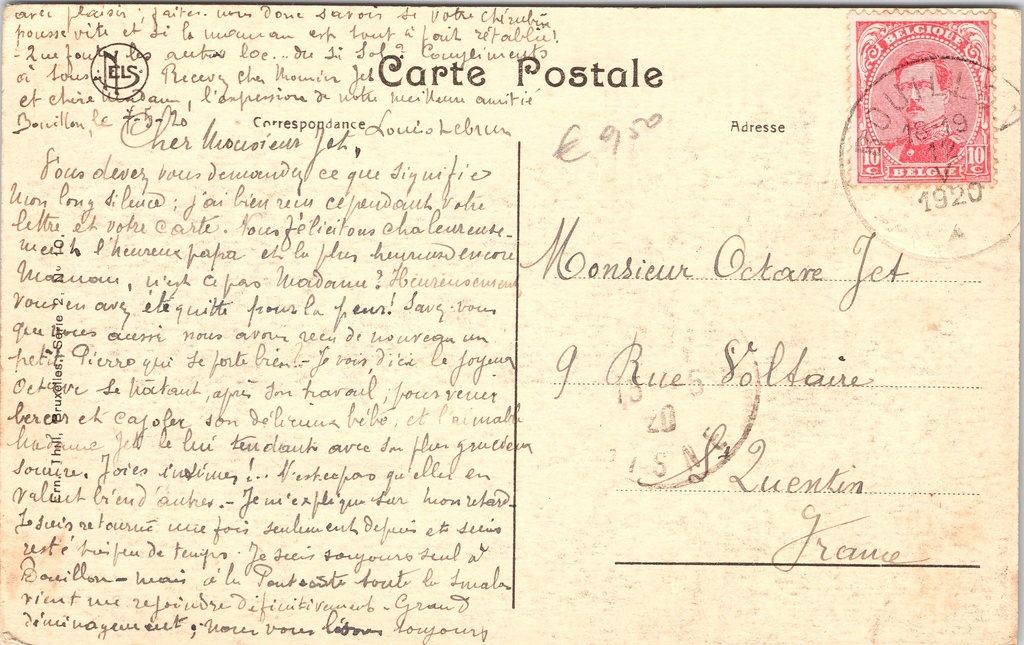 Carte Postale
Correspondance
Adresse
NELS
€ 9,50
BELGIQUE
10c 10c
BELGIE
BOUILLON
18-19
12
V
1920
Bouillon, le 7-5-20
Cher Monsieur Jet,
Vous devez vous demander ce que signifie
mon long silence ; j'ai bien reçu cependant votre
lettre et votre carte. Nous félicitons chaleureuse-
ment l'heureux papa et la plus heureuse encore
Maman, n'est ce pas Madame ? Heureusement
vous en avez été quitte pour la peur ! Savez-vous
que nous aussi nous avons reçu de nouveau un
petit Pierre qui se porte bien. - Je vois d'ici le joyeux
Octave se hâtant, après son travail, pour venir
bercer et cajoler son délicieux bébé, et l'aimable
Madame Jet le lui tendant avec son plus gracieux
sourire. Joies intimes !... N'est ce pas qu'elles en
valent bien d'autres. - Je m'explique sur mon retard.
Je suis retourné une fois seulement depuis et suis
resté bien peu de temps. Je suis toujours seul à
Bouillon - mais à la Pentecôte toute la smala
vient me rejoindre définitivement. Grand
déménagement ; nous vous lisons toujours
avec plaisir ; faites-nous donc savoir si votre chérubin
pousse vite et si la maman est tout à fait rétablie.
- Que font les autres loc... du si sol ? Compliments
à tous. Recevez cher Monsieur Jet
et chère Madame, l'expression de notre meilleure amitié
Louis Lebrun
Monsieur Octave Jet
9 Rue Voltaire
St Quentin
France
13 - 5
20
AISNE
Ern. Thill, Bruxelles, Série